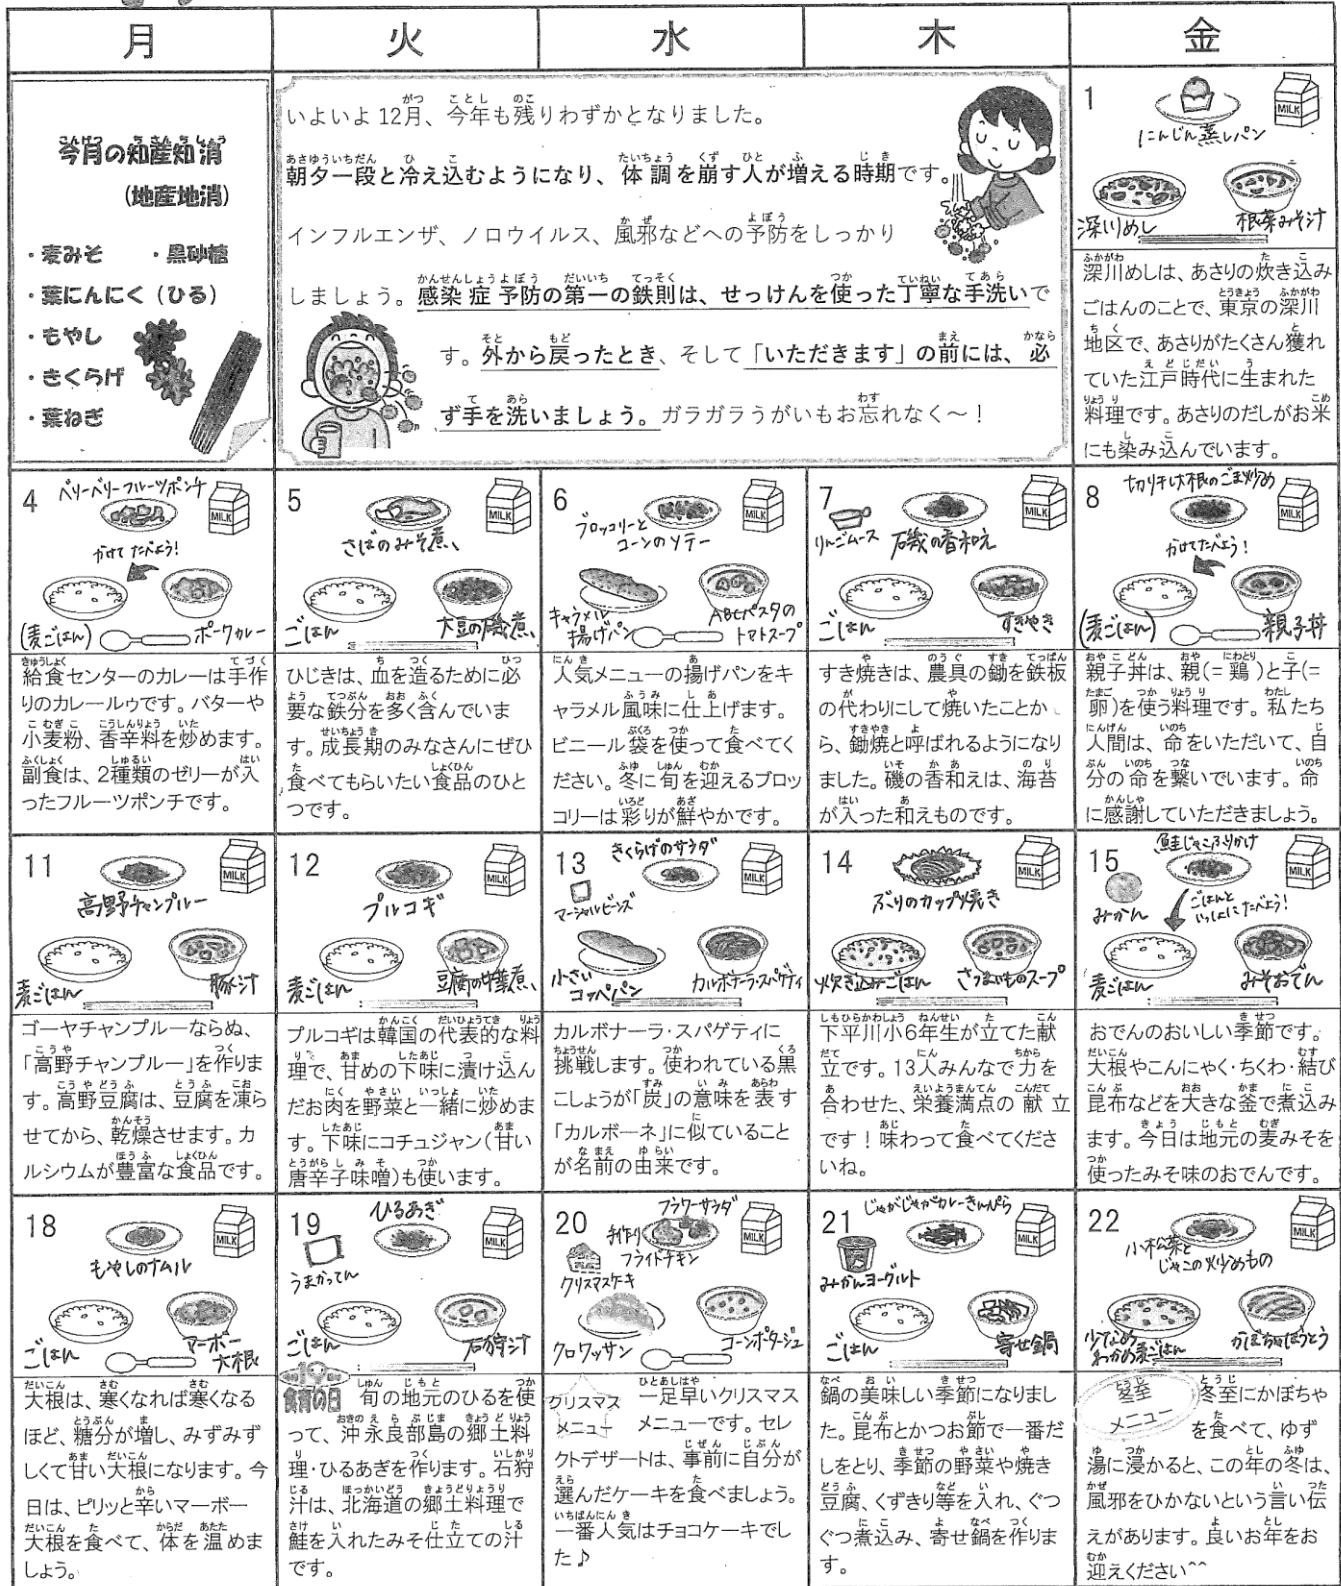 月
火
水
木
金
今月の知産知消
(地産地消)
・麦みそ ・黒砂糖
・葉にんにく（ひる）
・もやし
・きくらげ
・葉ねぎ
いよいよ12月、今年も残りわずかとなりました。
朝夕一段と冷え込むようになり、体調を崩す人が増える時期です。
インフルエンザ、ノロウイルス、風邪などへの予防をしっかり
しましょう。感染症予防の第一の鉄則は、せっけんを使った丁寧な手洗いで
す。外から戻ったとき、そして「いただきます」の前には、必
ず手を洗いましょう。ガラガラうがいもお忘れなく～！
1
MILK
にんじん蒸しパン
深川めし
根菜みそ汁
深川めしは、あさりの炊き込み
ごはんのことで、東京の深川
地区で、あさりがたくさん獲れ
ていた江戸時代に生まれた
料理です。あさりのだしがお米
にも染み込んでいます。
4
ベリーベリーフルーツポンチ
MILK
かけてたべよう！
(麦ごはん)
ポークカレー
給食センターのカレーは手作
りのカレールゥです。バターや
小麦粉、香辛料を炒めます。
副食は、2種類のゼリーが入
ったフルーツポンチです。
5
MILK
さばのみそ煮
ごはん
大豆の磯煮
ひじきは、血を造るために必
要な鉄分を多く含んでいま
す。成長期のみなさんにぜひ
食べてもらいたい食品のひと
つです。
6
MILK
ブロッコリーと
コーンのソテー
キャラメル
揚げパン
ABCパスタの
トマトスープ
人気メニューの揚げパンをキ
ャラメル風味に仕上げます。
ビニール袋を使って食べてく
ださい。冬に旬を迎えるブロッ
コリーは彩りが鮮やかです。
7
MILK
りんごムース
磯の香和え
ごはん
すきやき
すき焼きは、農具の鋤を鉄板
の代わりにして焼いたことか
ら、鋤焼と呼ばれるようになり
ました。磯の香和えは、海苔
が入った和えものです。
8
切り干し大根のごま炒め
MILK
かけてたべよう！
(麦ごはん)
親子丼
親子丼は、親(=鶏)と子(=
卵)を使う料理です。私たち
人間は、命をいただいて、自
分の命を繋いでいます。命
に感謝していただきましょう。
11
MILK
高野チャンプルー
麦ごはん
豚汁
ゴーヤチャンプルーならぬ、
「高野チャンプルー」を作りま
す。高野豆腐は、豆腐を凍ら
せてから、乾燥させます。カ
ルシウムが豊富な食品です。
12
MILK
プルコギ
麦ごはん
豆腐の中華煮
プルコギは韓国の代表的な料
理で、甘めの下味に漬け込ん
だお肉を野菜と一緒に炒めま
す。下味にコチュジャン(甘い
唐辛子味噌)も使います。
13
きくらげのサラダ
MILK
マーシャルビーンズ
小さい
コッペパン
カルボナーラ・スパゲティ
カルボナーラ・スパゲティに
挑戦します。使われている黒
こしょうが「炭」の意味を表す
「カルボーネ」に似ていること
が名前の由来です。
14
MILK
ぶりのカップ焼き
炊き込みごはん
さつまいものスープ
下平川小6年生が立てた献
立です。13人みんなで力を
合わせた、栄養満点の献立
です！味わって食べてくださ
いね。
15
鮭じゃこふりかけ
MILK
みかん
ごはんと
いっしょにたべよう！
麦ごはん
みそおでん
おでんのおいしい季節です。
大根やこんにゃく・ちくわ・結び
昆布などを大きな釜で煮込み
ます。今日は地元の麦みそを
使ったみそ味のおでんです。
18
MILK
もやしのナムル
ごはん
マーボー
大根
大根は、寒くなれば寒くなる
ほど、糖分が増し、みずみず
しくて甘い大根になります。今
日は、ピリッと辛いマーボー
大根を食べて、体を温めま
しょう。
19
ひるあぎ
MILK
うまかってん
ごはん
石狩汁
19
食育の日
旬の地元のひるを使
って、沖永良部島の郷土料
理・ひるあぎを作ります。石狩
汁は、北海道の郷土料理で
鮭を入れたみそ仕立ての汁
です。
20
フラワーサラダ
MILK
手作り
フライドチキン
クリスマスケーキ
クロワッサン
コーンポタージュ
クリスマス
メニュー
一足早いクリスマス
メニューです。セレ
クトデザートは、事前に自分が
選んだケーキを食べましょう。
一番人気はチョコケーキでし
た♪
21
じゃがじゃがカレーきんぴら
MILK
みかんヨーグルト
ごはん
寄せ鍋
鍋の美味しい季節になりまし
た。昆布とかつお節で一番だ
しをとり、季節の野菜や焼き
豆腐、くずきり等を入れ、ぐつ
ぐつ煮込み、寄せ鍋を作りま
す。
22
MILK
小松菜と
じゃこの炒めもの
少なめ
わかめ麦ごはん
かぼちゃほうとう
冬至
メニュー
冬至にかぼちゃ
を食べて、ゆず
湯に浸かると、この年の冬は、
風邪をひかないという言い伝
えがあります。良いお年をお
迎えください^^